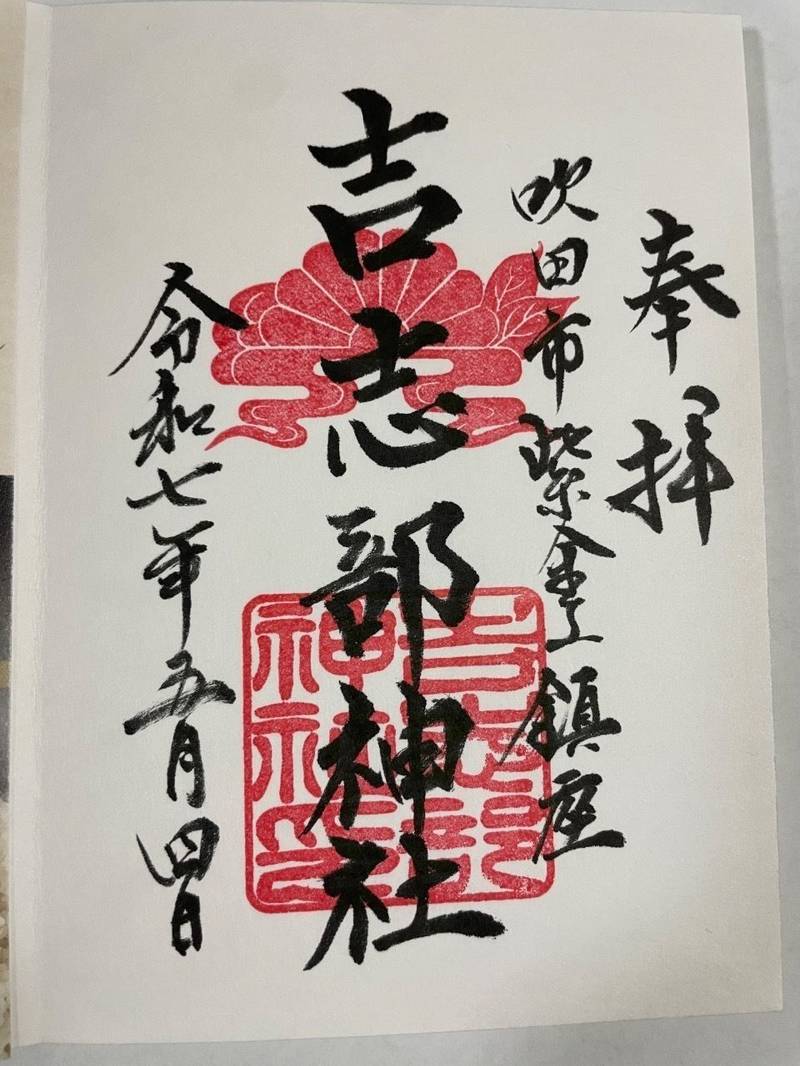 奉拝
吹田市紫金山鎮座
吉志部神社
令和七年五月四日
吉志部
神社印